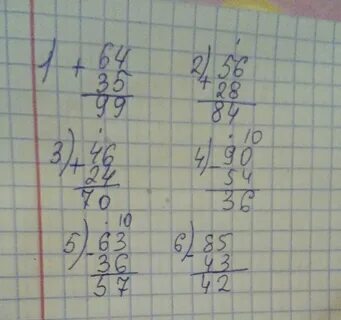 1) + 64
35
99
2) + 56
28
84
3) + 46
24
70
4) - 90
54
36
5) - 63
36
57
6) - 85
43
42